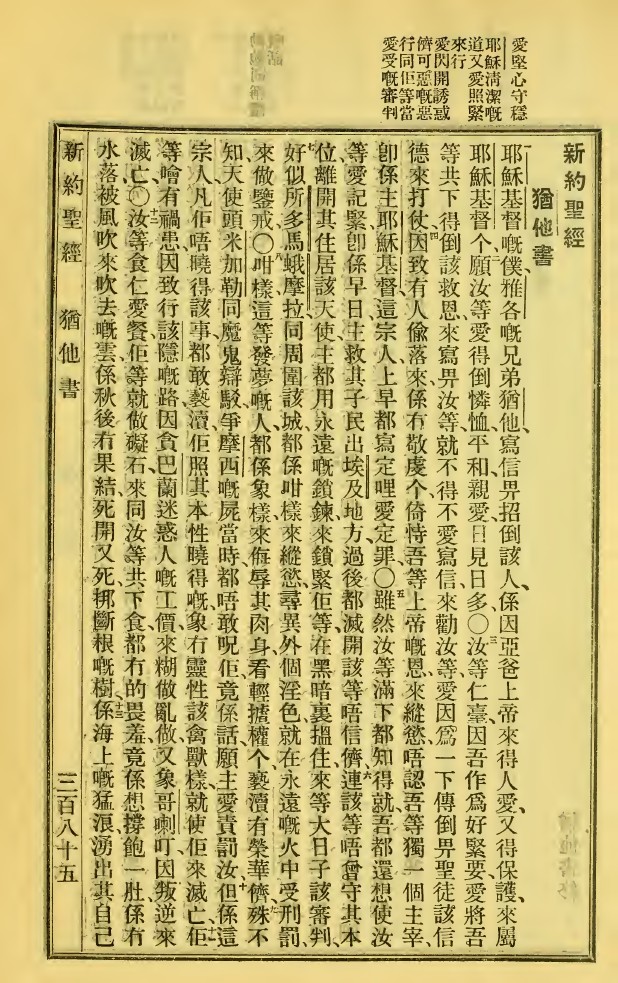 愛堅心守穩
耶穌淸潔嘅
道又愛照緊
來行
愛閃開誘惑
儕可惡嘅惡
行同佢等當
愛受嘅審判
新約聖經
猶他書
一耶穌基督嘅僕、雅各嘅兄弟猶他、寫信畀招倒該人、係因亞爸上帝來得人愛、又得保護、來屬
耶穌基督个、二願汝等愛得倒憐恤平和、親愛日見日多〇三汝等仁臺因吾作爲好緊要愛將吾
等共下得倒該救恩來寫畀汝等、就不得不愛寫信來勸汝等愛因爲一下傳倒畀聖徒該信
德來打仗、四因致有人偷落來、係冇敬虔个、倚恃吾等上帝嘅恩、來縱慾、唔認吾等獨一個主宰、
卽係主耶穌基督、這宗人上早都寫定哩愛定罪〇五雖然汝等滿下都知得、就吾都還想使汝
等愛記緊、卽係早日主救其子民出埃及地方、過後都滅開該等唔信儕、六連該等唔會守其本
位、離開其住居該天使、主都用永遠嘅鎖鍊來鎖緊佢等、在黑暗裏揾住來等大日子該審判、
七好似所多馬蛾摩拉同周圍該城、都係咁樣來縱慾、尋異外個淫色、就在永遠嘅火中受刑罰、
來做鑒戒〇八咁樣這等發夢嘅人、都係象樣來侮辱其肉身、看輕攎權个、褻瀆有榮華儕、九殊不
知天使頭米加勒同魔鬼辯駁爭摩西嘅屍當時、都唔敢呪佢、竟係話願主愛責罰汝、十但係這
宗人凡佢唔曉得該事、都敢褻瀆、佢照其本性曉得嘅、象冇靈性該禽獸樣、就使佢來滅亡、十一佢
等噲有禍患、因致行該隱嘅路、因貪巴蘭迷惑人嘅工價來糊做亂做、又象哥喇叮因叛逆來
滅亡〇十二汝等食仁愛餐、佢等就做礙石來同汝等共下食、都冇的畏羞、竟係想撐飽一肚、係冇
水落被風吹來吹去嘅雲、係秋後冇果結、死開又死、挷斷根嘅樹、十三係海上嘅猛浪、湧出其自己
新約聖經　猶他書　三百八十五